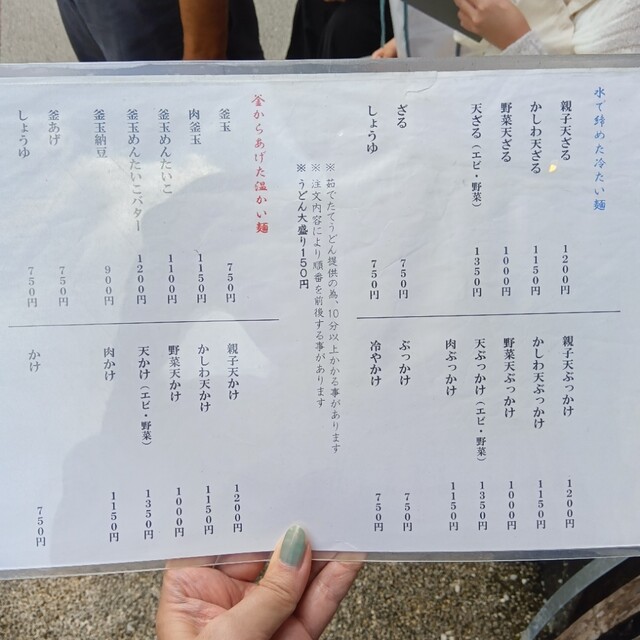 水で締めた冷たい麺
親子天ざる 1200円
かしわ天ざる 1150円
野菜天ざる 1000円
天ざる（エビ・野菜） 1350円
ざる 750円
しょうゆ 750円
親子天ぶっかけ 1200円
かしわ天ぶっかけ 1150円
野菜天ぶっかけ 1000円
天ぶっかけ（エビ・野菜） 1350円
肉ぶっかけ 1150円
ぶっかけ 750円
冷やかけ 750円
※茹でたてうどん提供の為、10分以上かかる事があります
※注文内容により順番を前後する事があります
※うどん大盛り150円
釜からあげた温かい麺
釜玉 750円
肉釜玉 1150円
釜玉めんたいこ 1100円
釜玉めんたいこバター 1200円
釜玉納豆 900円
釜あげ 750円
しょうゆ 750円
親子天かけ 1200円
かしわ天かけ 1150円
野菜天かけ 1000円
天かけ（エビ・野菜） 1350円
肉かけ 1150円
かけ 750円